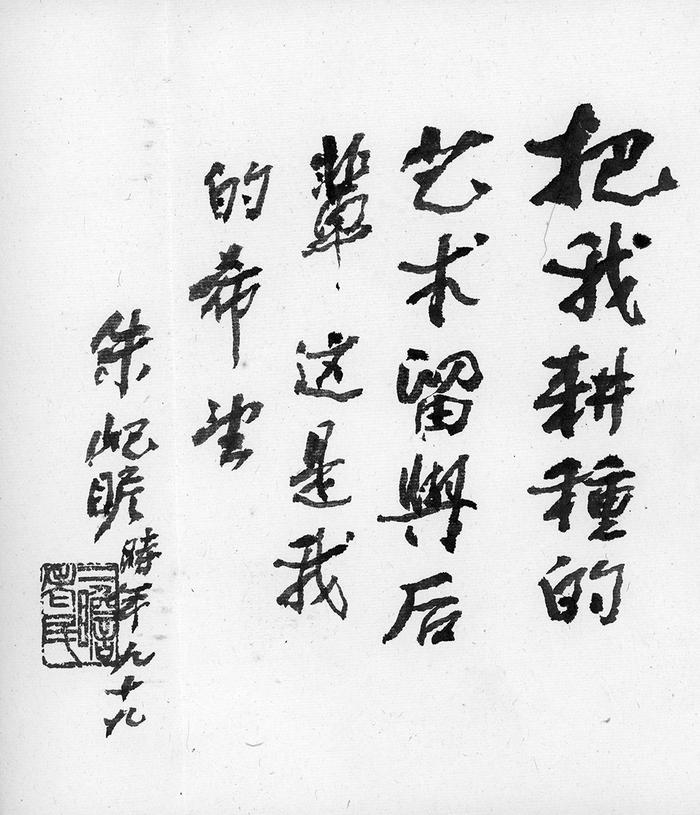 把我耕種的
艺术留與后
輩、这是我
的希望
朱屺瞻
時年九十
二瞻老民